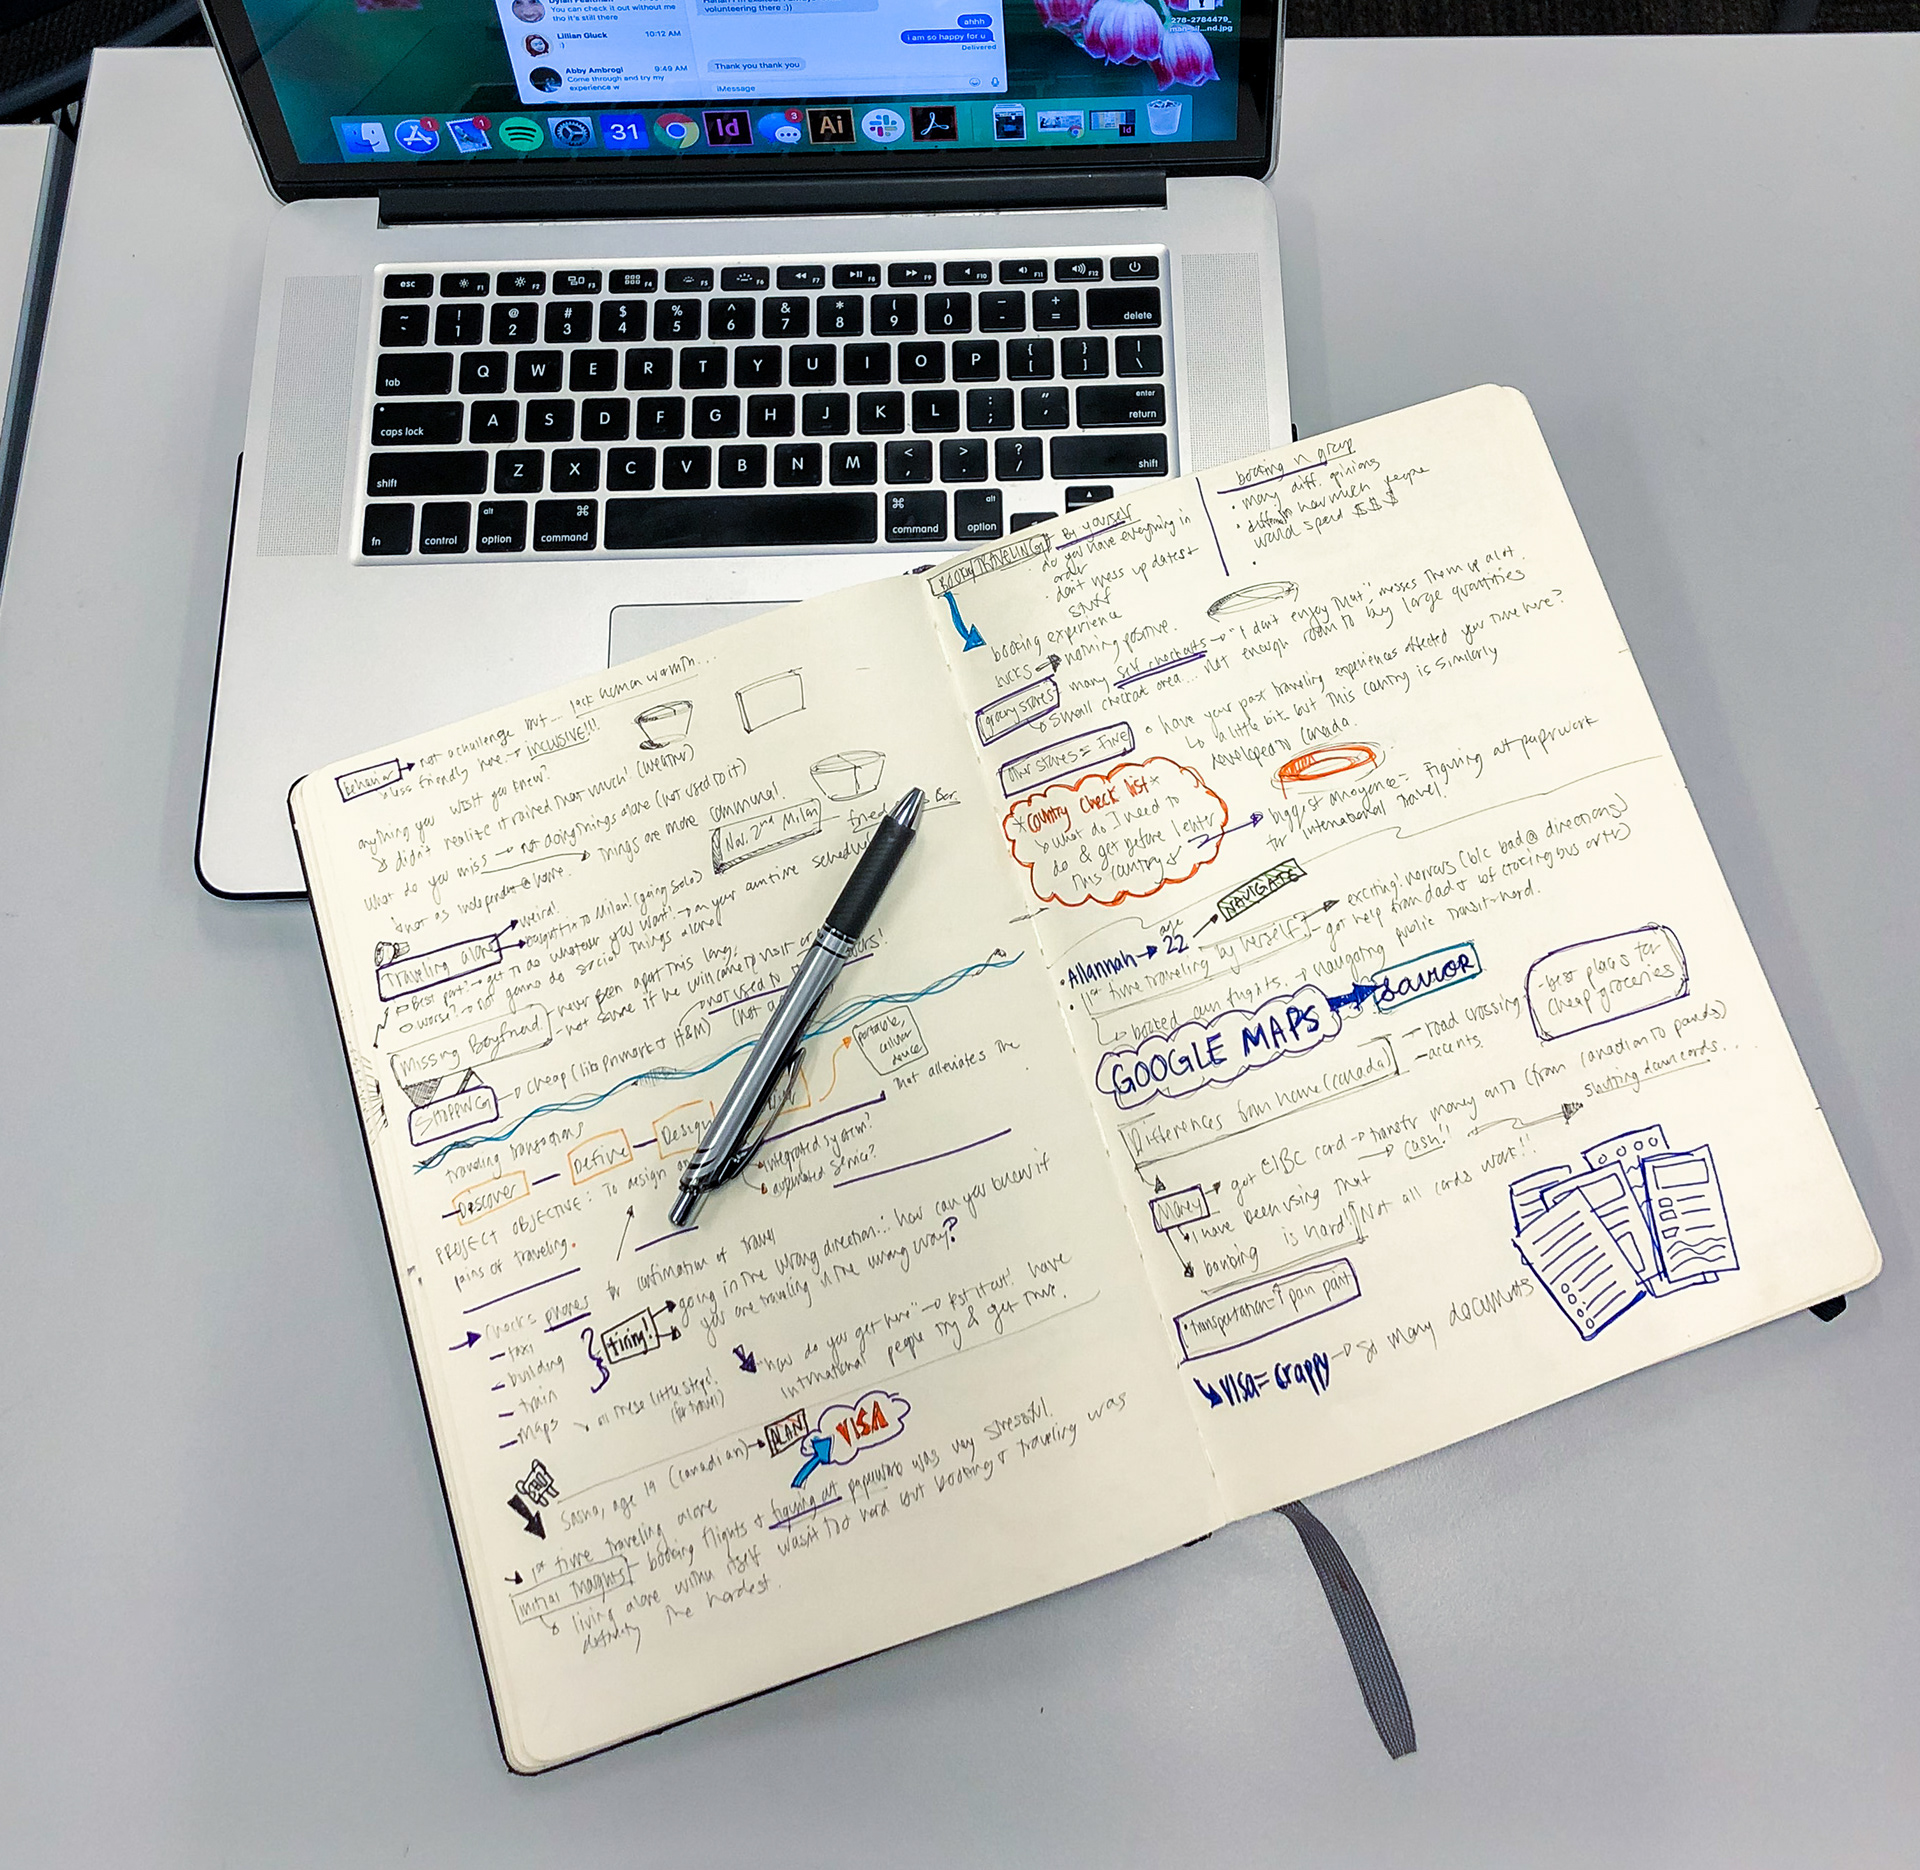 You can check it out without me
tho it's still there
Lillian Gluck 10:12 AM
:)
Abby Ambrogi 9:49 AM
Come through and try my
experience w
volunteering there :))
ahhh
i am so happy for u
Delivered
Thank you thank you
iMessage
278-2784479_
1
1
31
Id
3
Ai
esc F1 F2 F3 F4 F5 F6 F7 F8 F9 F10 F11 F12
~ ` ! 1 @ 2 # 3 $ 4 % 5 ^ 6 & 7 * 8 ( 9 ) 0 _ - + = delete
tab Q W E R T Y U I O P { [ } ] | \
caps lock A S D F G H J K L : ; " ' enter return
shift Z X C V B N M < , > . ? / shift
fn control alt option ⌘ command ⌘ command alt option
behavior → not a challenge but... lack human warmth...
less friendly here → inclusive!!!
anything you wish you knew?
didn't realize it rained that much! (weather)
What do you miss → not doing things alone (not used to it)
things are more communal
not as independent @ home.
Nov. 2nd Milan
Traveling alone → weird!
→ to Milan! (going solo)
Best part: get to do whatever you want! → on your own time schedule
worse? → not gonna do social things alone
Missing Boyfriend - never been apart this long.
- not sure if he will come to visit or
not used to
SHOPPING → cheap (like primark & H&M)
portable, cellular device
traveling transactions
Discover — Define — Design
PROJECT OBJECTIVE: To design an
integrated system?
automated service?
that alleviates the
pains of traveling.
→ checks phones for confirmation of travel
- taxi
- building
- train
- maps
timing!
going in the wrong direction... how can you know if
you are traveling in the wrong way?
all these little steps!
(for travel)
"how do you get here" → list it out! have
international people try & get there.
Sasha, age 19 (canadian) → PLAN
VISA
1st time traveling alone
initial thoughts - booking flights & figuring out paperwork was very stressful.
living alone within itself wasn't too hard but booking & traveling was
definitely the hardest.
BOOKING TRAVELING
By yourself
do you have everything in
order
don't mess up dates &
stuff
booking n group
• many diff. opinions
• how much people
would spend $$$
booking experience
sucks → nothing positive.
grocery stores - many self checkouts → "I don't enjoy that", messes them up alot.
small checkout area... not enough room to buy large quantities
other stores = FINE
have your past traveling experiences affected your time here?
a little bit, but this country is similarly
developed to Canada.
*Country Check list*
what do I need to
do & get before I enter
this country
biggest annoyance = figuring out paperwork
for international travel.
• Allannah → age 22
NAVIGATE
• 1st time traveling by herself? → exciting! nervous (b/c bad @ directions)
- got help from dad & bf (taking bus or tr)
booked own flights. → navigating public transit - hard.
GOOGLE MAPS → SAVIOR
- best places for
cheap groceries
Differences from home (canada)
- road crossing
- accents
Money → got CIBC card → transfer money onto (from canadian to pounds)
I have been using that → cash!!
shutting down cards...
banking is hard! Not all cards work!!
• transportation = pain point
visa = crappy → so many documents